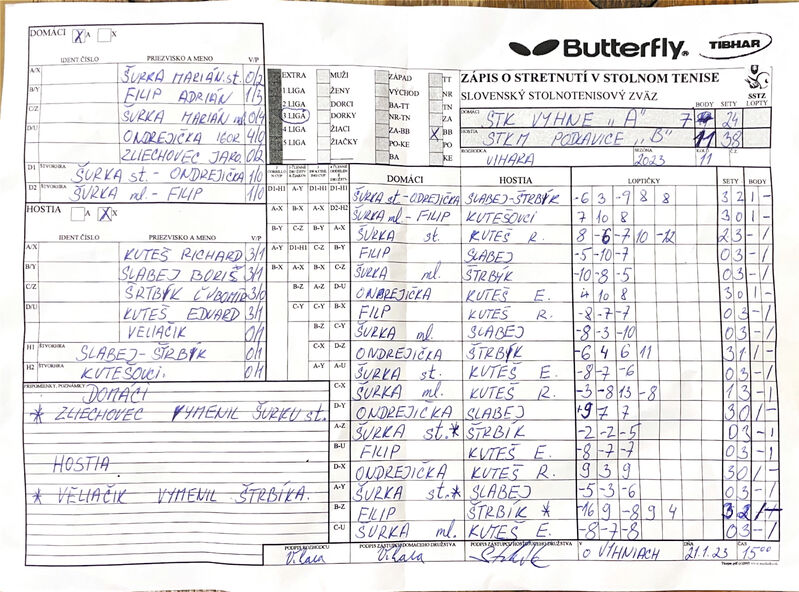 Butterfly® TIBHAR
DOMÁCI X A X
IDENT ČÍSLO PRIEZVISKO A MENO V/P
A/X ŠURKA MARIÁN st. 0/2
B/Y FILIP ADRIÁN 1/3
C/Z ŠURKA MARIÁN ml. 0/4
D/U ONDREJIČKA IGOR 4/0
ZLIECHOVEC JARO 0/2
D1 ŠTVORHRA ŠURKA st - ONDREJIČKA 1/0
D2 ŠTVORHRA ŠURKA ml. - FILIP 1/0
HOSTIA A X X
IDENT ČÍSLO PRIEZVISKO A MENO V/P
A/X KUTEŠ RICHARD 3/1
B/Y SLABEJ BORIŠ 3/1
C/Z ŠRTBÍK ĽUBOMÍR 3/0
D/U KUTEŠ EDUARD 3/1
VELIAČIK 0/1
H1 ŠTVORHRA SLABEJ-ŠTRBÍK 0/1
H2 ŠTVORHRA KUTEŠOVCI. 0/1
PRIPOMIENKY, POZNÁMKY
DOMÁCI
* ZLIECHOVEC VYMENIL ŠURKU st.
HOSTIA
* VELIAČIK VYMENIL ŠTRBÍKA.
EXTRA MUŽI ZÁPAD TT
1 LIGA ŽENY VÝCHOD NR
2 LIGA DORCI BA-TT TN
3 LIGA DORKY NR-TN ZA
4 LIGA ŽIACI ZA-BB X BB
5 LIGA ŽIAČKY PO-KE PO
BA KE
ZÁPIS O STRETNUTÍ V STOLNOM TENISE
SLOVENSKÝ STOLNOTENISOVÝ ZVÄZ
SSTZ
BODY SETY LOPTY
DOMÁCI STK VYHNE "A" 7 24
HOSTIA STKM PODKAVICE "B" 11 38
ROZHODCA VIHARA SEZÓNA 2023 KOLO 11 Č.Z.
DOMÁCI HOSTIA LOPTIČKY SETY BODY
D1-H1 A-Y D1-H1 D1-H1 ŠURKA st - ONDREJIČKA SLABEJ-ŠTRBÍK -6 3 -9 8 8 3 2 1 -
A-X B-X A-X D2-H2 ŠURKA ml - FILIP KUTEŠOVCI 7 10 8 3 0 1 -
B-Y C-Z B-Y A-X ŠURKA st. KUTEŠ R. 8 -6 -7 10 -12 2 3 - 1
A-Y D1-H1 C-Z B-Y FILIP SLABEJ -5 -10 -7 0 3 - 1
B-X A-X B-X C-Z ŠURKA ml. ŠTRBÍK -10 -8 -5 0 3 - 1
B-Z A-Z D-U ONDREJIČKA KUTEŠ E. 4 10 8 3 0 1 -
C-Y C-Y B-X FILP KUTEŠ R. -8 -7 -7 0 3 - 1
B-Z C-Y ŠURKA ml. SLABEJ -8 -3 -10 0 3 - 1
C-X D-Z ONDREJIČKA ŠTRBÍK -6 4 6 11 3 1 1 -
A-Y A-U ŠURKA st. KUTEŠ E. -8 -7 -6 0 3 - 1
C-X ŠURKA ml. KUTEŠ R -3 -8 13 -8 1 3 - 1
D-Y ONDREJIČKA SLABEJ 9 7 7 3 0 1 -
A-Z ŠURKA st.* ŠTRBÍK -2 -2 -5 0 3 - 1
B-U FILIP KUTEŠ E. -8 -7 -7 0 3 - 1
D-X ONDREJIČKA KUTEŠ R. 9 3 9 3 0 1 -
A-Y ŠURKA st.* SLABEJ -5 -3 -6 0 3 - 1
B-Z FILIP ŠTRBÍK * -16 9 -8 9 4 3 2 1 -
C-U ŠURKA ml. KUTEŠ E. -8 -7 -8 0 3 - 1
PODPIS ROZHODCU Vihara PODPIS ZÁSTUPCU DOMÁCEHO DRUŽSTVA Vihara PODPIS ZÁSTUPCU HOSŤUJÚCEHO DRUŽSTVA V O VYHNIACH DŇA 21.1.23 ČAS 15⁰⁰